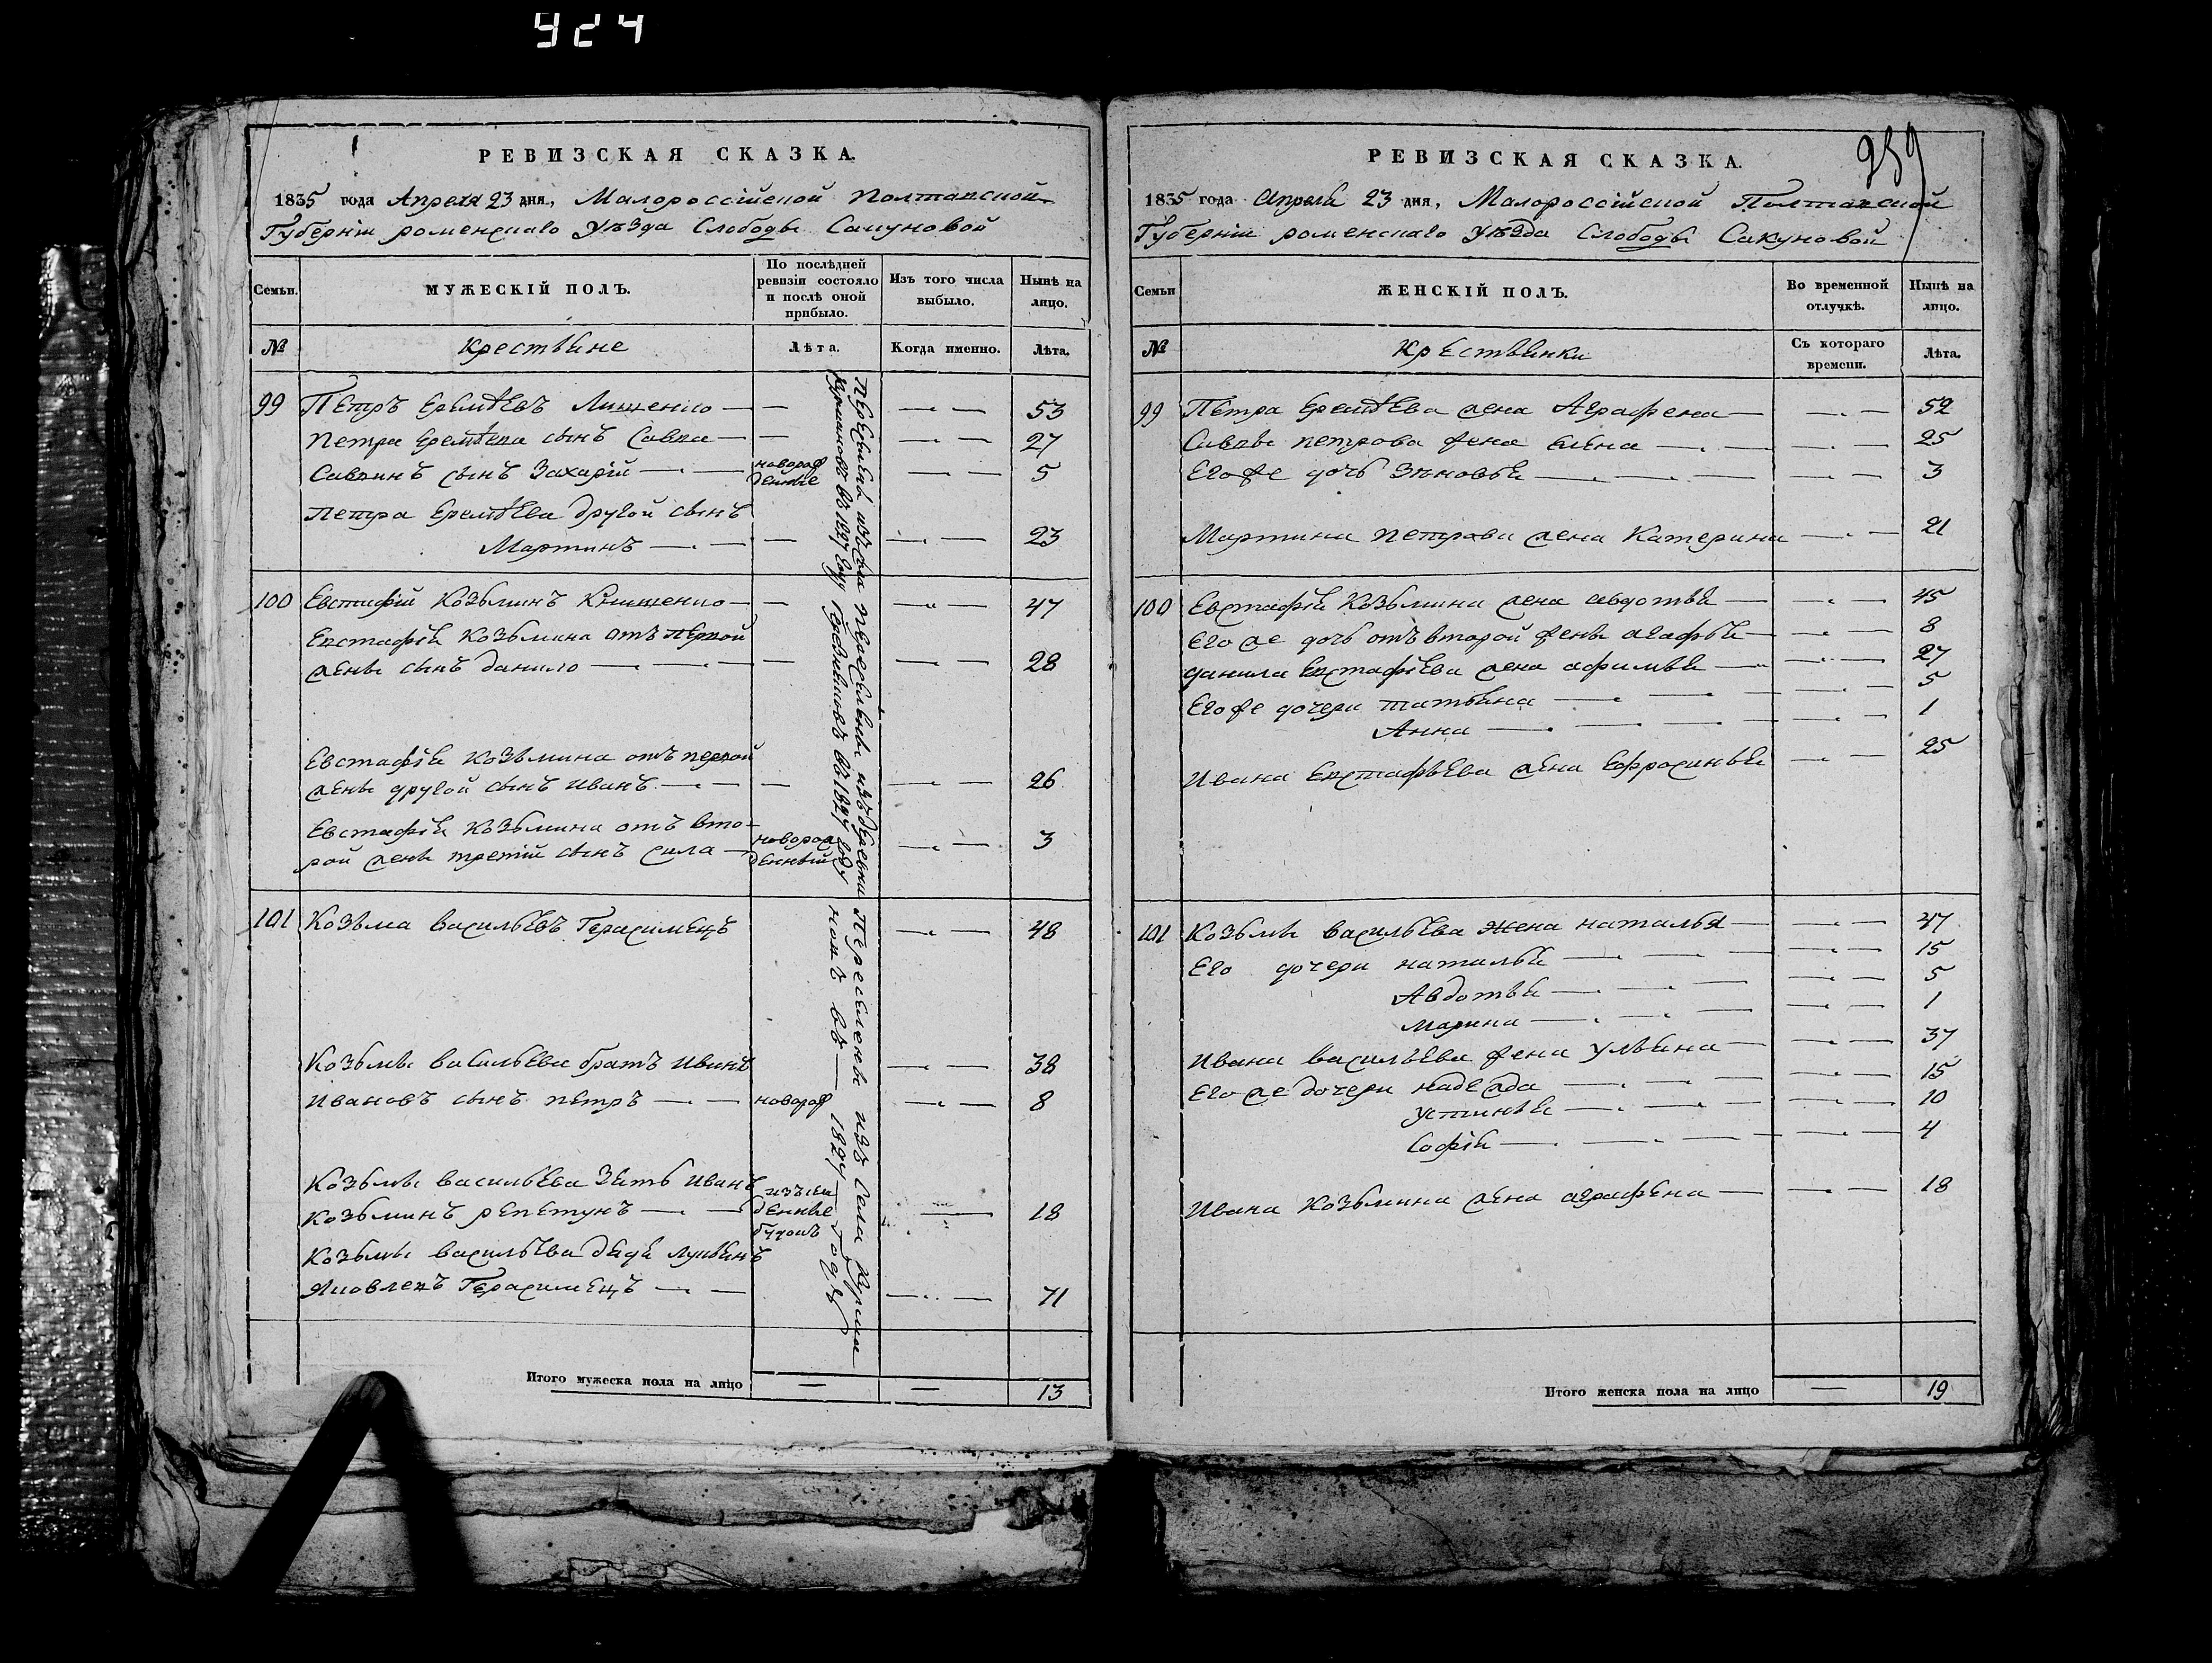 924
РЕВИЗСКАЯ СКАЗКА.
1835 года Апреля 23 дня, Малороссійской Полтавской
Губерніи роменскаго уѣзда Слободы Сакуновой
Семьи.
МУЖЕСКІЙ ПОЛЪ.
По послѣдней
ревизіи состояло
и послѣ оной
прибыло.
Изъ того числа
выбыло.
Нынѣ на
лицо.
№
Крестьяне
Лѣта.
Когда именно.
Лѣта.
99 Петръ Еремѣевъ Лищенко — — 53
Петра Еремѣева сынъ Савка — — 27
Савкинъ сынъ Захарій — новорож — 5
денные
Петра Еремѣева другой сынъ
Мартинъ — — 23
100 Евстафій Козьминъ — — 47
Евстафія Козьмина отъ первой
жены сынъ данило — — 28
Евстафія Козьмина отъ первой
жены другой сынъ иванъ — — 26
Евстафія Козьмина отъ вто-
рой жены третій сынъ сила — новорож — 3
денный
101 Козьма васильевъ Герасимецъ — 48
Козьмы васильева братъ иванъ — 38
Ивановъ сынъ петръ — новорож — 8
Козьмы васильева зять иванъ
Козьминъ репетунъ — — 18
Козьмы васильева дядя лукьянъ
Яковлевъ Герасимецъ — — 71
въ 1827 году
въ 1827 году
Переселены изъ села
въ — 1827 — годѣ
Итого мужеска пола на лицо — — 13
959
РЕВИЗСКАЯ СКАЗКА.
1835 года Апреля 23 дня, Малороссійской Полтавской
Губерніи роменскаго уѣзда Слободы Сакуновой
Семьи
ЖЕНСКІЙ ПОЛЪ.
Во временной
отлучкѣ.
Нынѣ на
лицо.
№
Крестьянки
Съ котораго
времени.
Лѣта.
99 Петра Еремѣева жена Аграфена — — 52
Савки петрова жена елена — — 25
Его же дочь Зѣновья — — 3
Мартина петрова жена Катерина — — 21
100 Евстафія Козьмина жена авдотья — — 45
Его же дочь отъ второй жены агафья — — 8
данила Евстафіева жена афимья — — 27
Его же дочери татьяна — — 5
Анна — — 1
Ивана Евстафьева жена Ефросинья — — 25
101 Козьмы васильева жена наталья — — 47
Его дочери наталья — — 15
Авдотья — — 5
Марина — — 1
Ивана васильева жена ульяна — — 37
Его же дочери надежда — — 15
устинья — — 10
Софія — — 4
Ивана Козьмина жена аграфена — — 18
Итого женска пола на лицо — 19